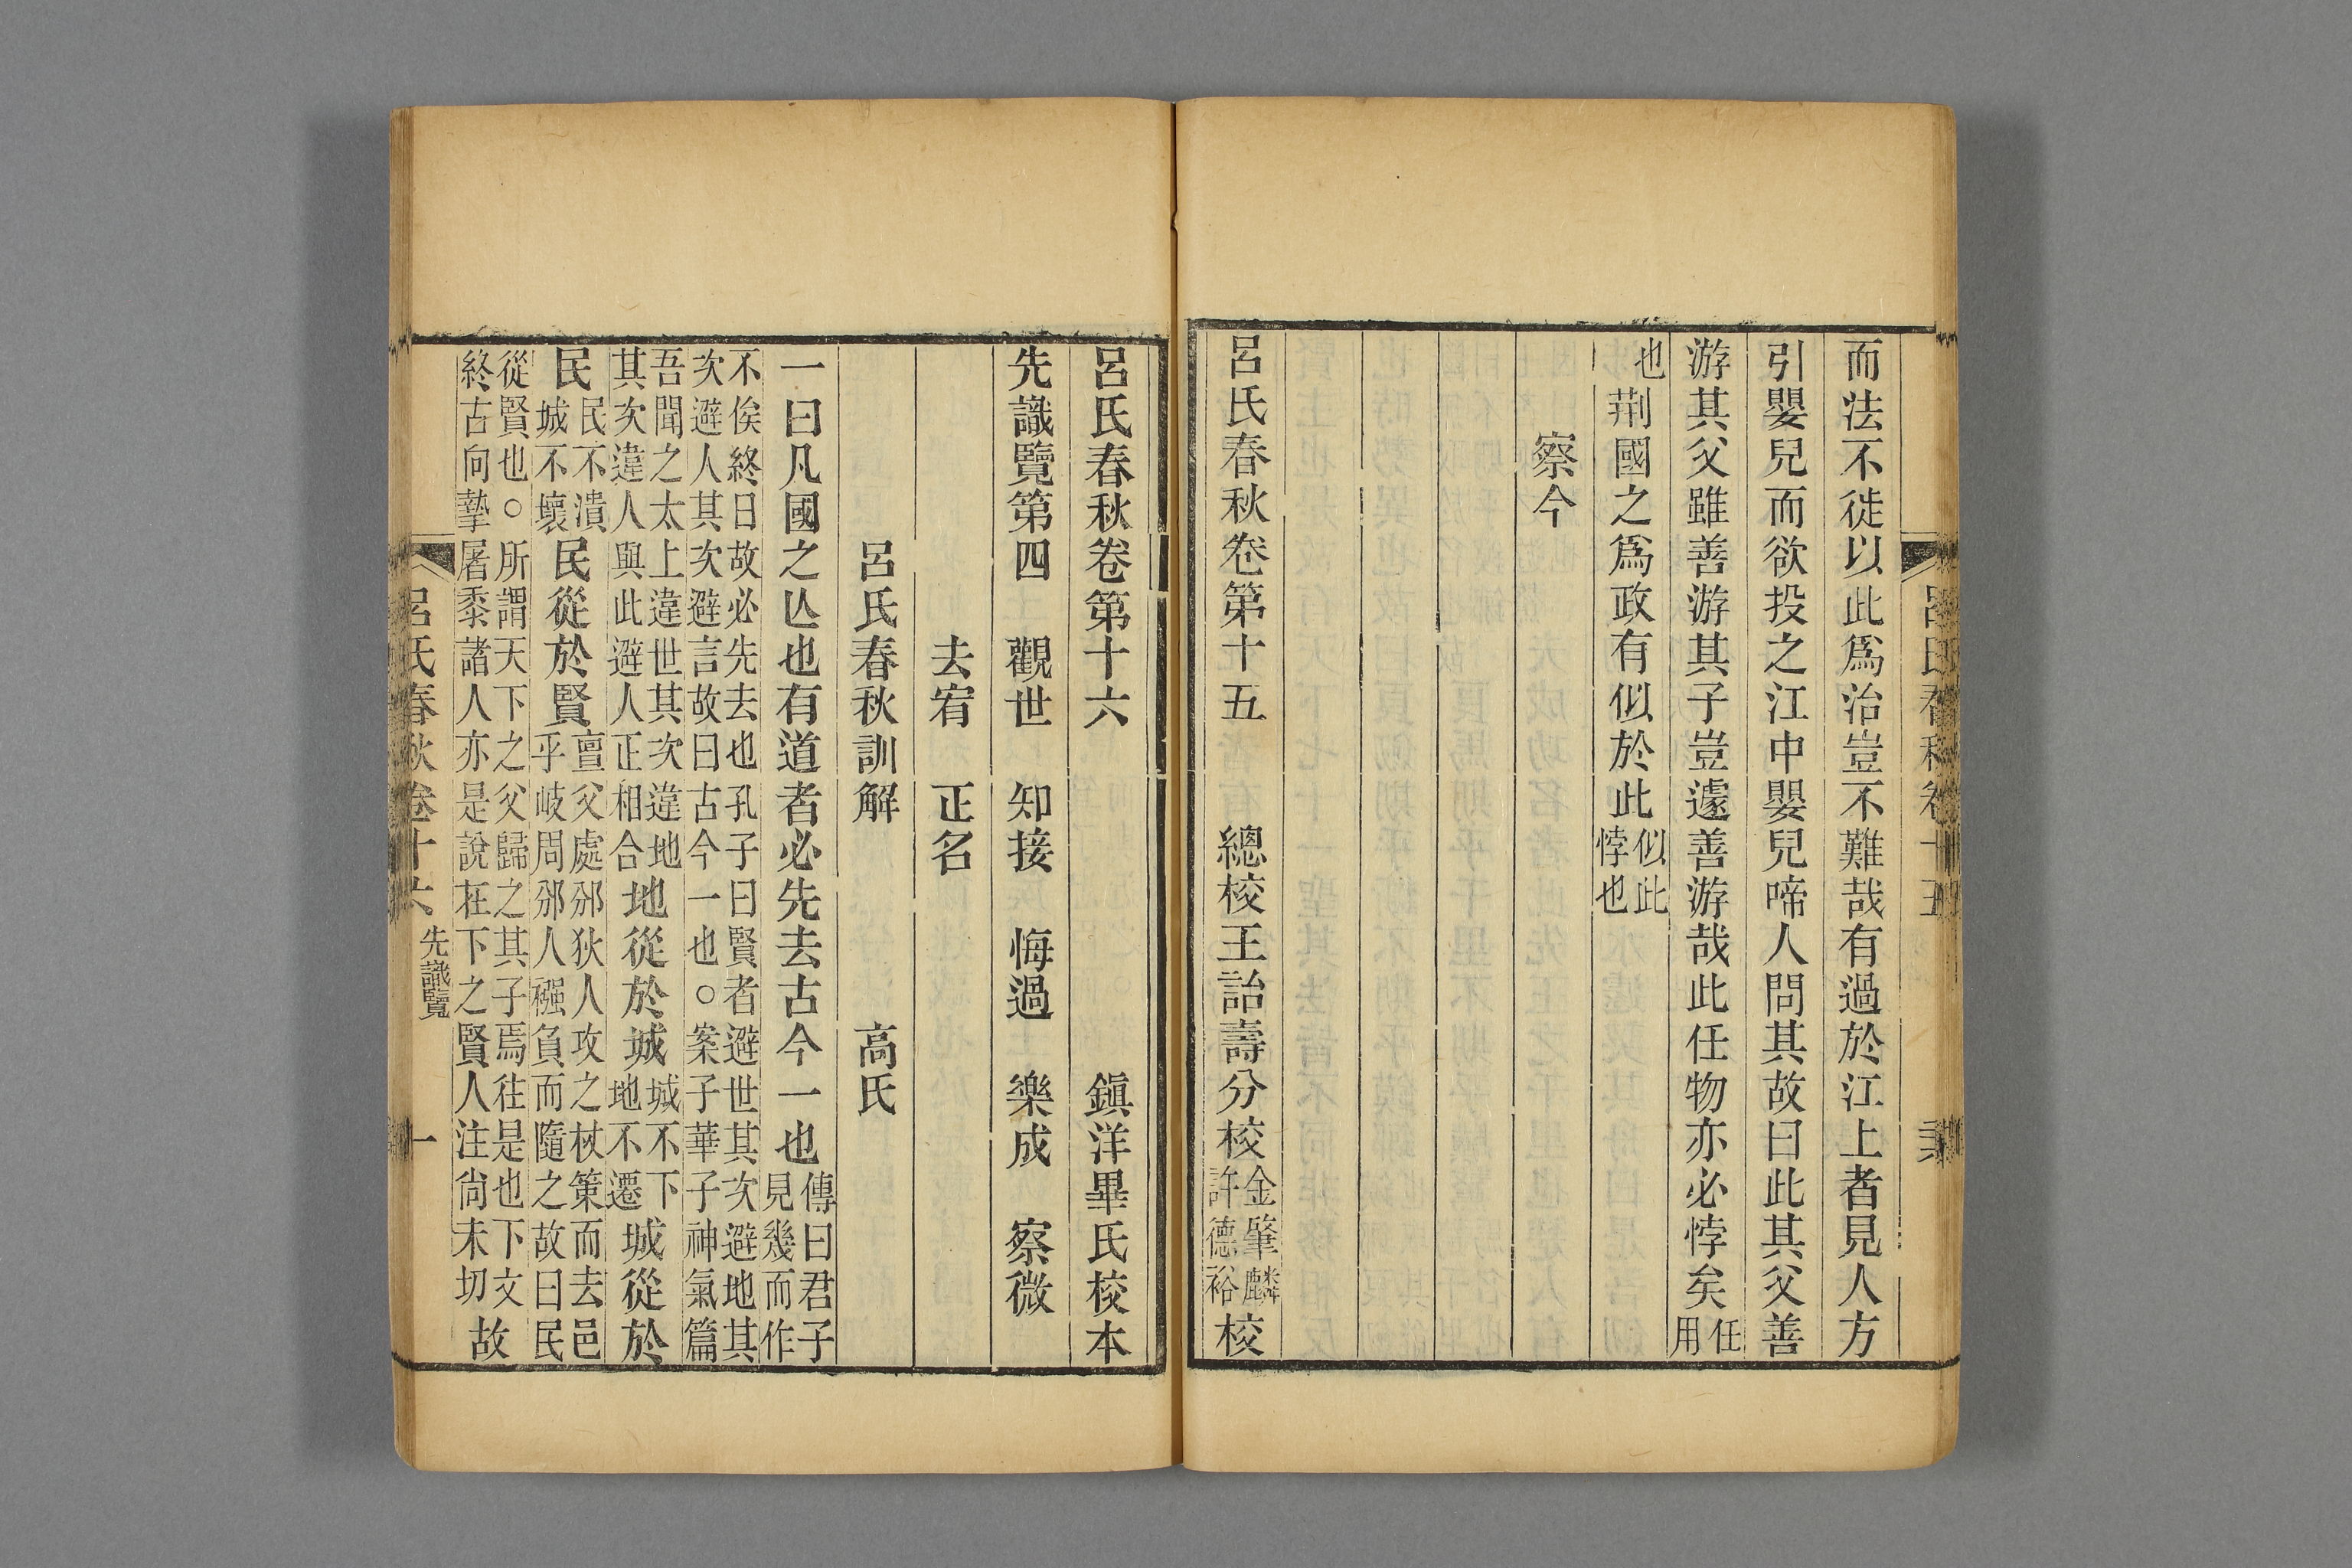 呂氏春秋卷十五
而法不徙以此爲治豈不難哉有過於江上者見人方
引嬰兒而欲投之江中嬰兒啼人問其故曰此其父善
游其父雖善游其子豈遽善游哉此任物亦必悖矣任用
也荆國之爲政有似於此似此悖也
察今
呂氏春秋卷第十五 總校王詒壽分校金肇麟許德裕校
呂氏春秋卷第十六 鎭洋畢氏校本
先識覽第四 觀世 知接 悔過 樂成 察微
去宥 正名
呂氏春秋訓解 高氏
一曰凡國之亾也有道者必先去古今一也傳曰君子見幾而作
不俟終日故必先去也孔子曰賢者避世其次避地其
次避人其次避言故曰古今一也○案子華子神氣篇
吾聞之太上違世其次違地
其次違人與此避人正相合地從於城城不下地不遷城從於
民民不潰城不壞民從於賢亶父處邠狄人攻之杖策而去邑乎岐周邠人襁負而隨之故曰民
從賢也○所謂天下之父歸之其子焉往是也下文
終古向摯屠黍諸人亦是說在下之賢人注尙未切故
呂氏春秋卷十六 先識覽 一